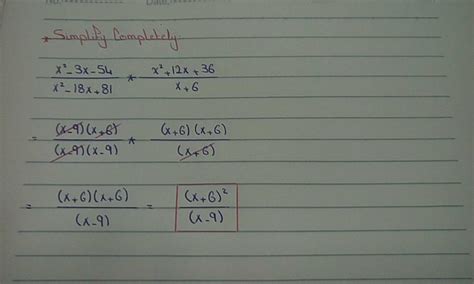 No.
Date.
* Simplify Completely
x²-3x-54 / x²-18x+81 * x²+12x+36 / x+6
= (x-9)(x+6) / (x-9)(x-9) * (x+6)(x+6) / (x+6)
= (x+6)(x+6) / (x-9) = (x+6)² / (x-9)